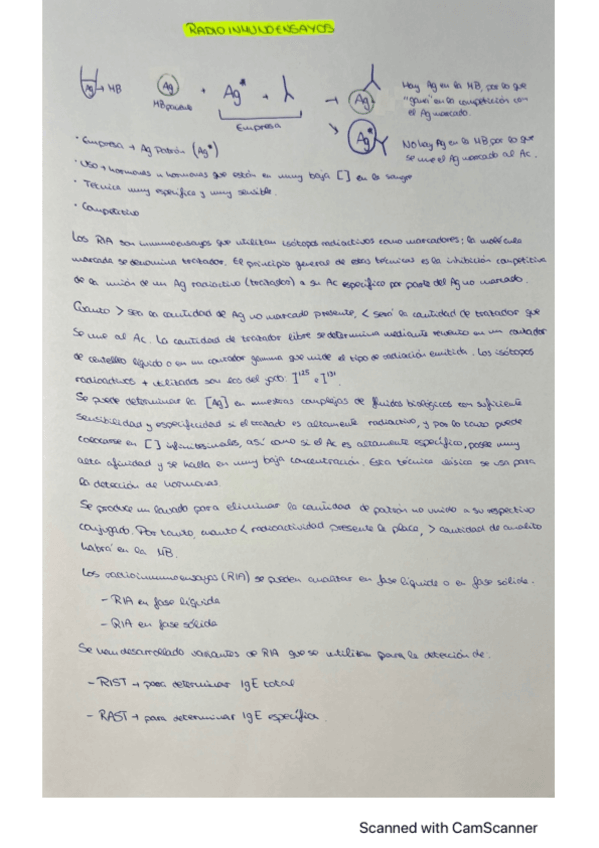 RADIOINMUNOENSAYOS
Ag → MB
Ag
MB paciente
+ Ag* + →
Empresa
Ag
Hay Ag en la MB, por lo que
"gana" en la competición con
el Ag marcado.
Ag*
No hay Ag en la MB por lo que
se une el Ag marcado al Ac.
· Empresa → Ag Patrón (Ag*)
· Uso → hormonas u hormonas que están en muy baja [ ] en la sangre
· Técnica muy específica y muy sensible.
· Competitivo
Los RIA son inmunoensayos que utilizan isótopos radiactivos como marcadores; la molécula
marcada se denomina tratador. El principio general de estas técnicas es la inhibición competitiva
de la unión de un Ag radiactivo (tratador) a su Ac específico por parte del Ag no marcado.
Cuanto > sea la cantidad de Ag no marcado presente, < será la cantidad de tratador que
se une al Ac. La cantidad de tratador libre se determina mediante recuento en un contador
de centelleo líquido o en un contador gamma que mide el tipo de radiación emitida. Los isótopos
radioactivos + utilizados son los del yodo: I¹²⁵ e I¹³¹
Se puede determinar la [Ag] en muestras complejas de fluidos biológicos con suficiente
sensibilidad y especificidad si el tratado es altamente radiactivo, y por lo tanto puede
colocarse en [ ] infinitesimales, así como si el Ac es altamente específico, posee muy
alta afinidad y se halla en muy baja concentración. Esta técnica clásico se usa para
la detección de hormonas
Se produce un lavado para eliminar la cantidad de patrón no unido a su respectivo
conjugado. Por tanto, cuanto < radioactividad presente la placa, > cantidad de analito
habrá en la MB.
Los radioinmunoensayos (RIA) se pueden analizar en fase líquida o en fase sólida.
- RIA en fase líquida
- RIA en fase sólida
Se han desarrollado variantes de RIA que se utilizan para la detección de:
- RIST → para determinar IgE total
- RAST → para determinar IgE específica.
Scanned with CamScanner